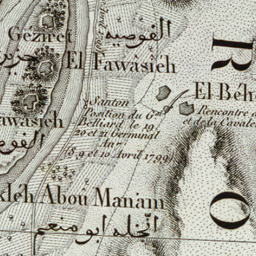 الفوصيه
Geziret
El Fawâsieh
R
El Béh
Santon
Position du G.al
Belliard le 19
20 et 21 Germinal
An 7
(8, 9 et 10 Avril 1799)
Rencontre
et de la Cavale
awâsieh
الفو
kleh Abou Manâm
النخله ابو منعم
O